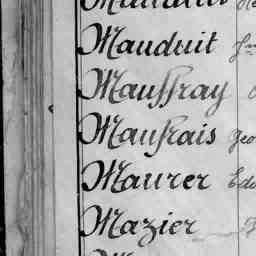 Mauduit
Mauffray
Maufrais Geo
Maurer Edo
Mazier